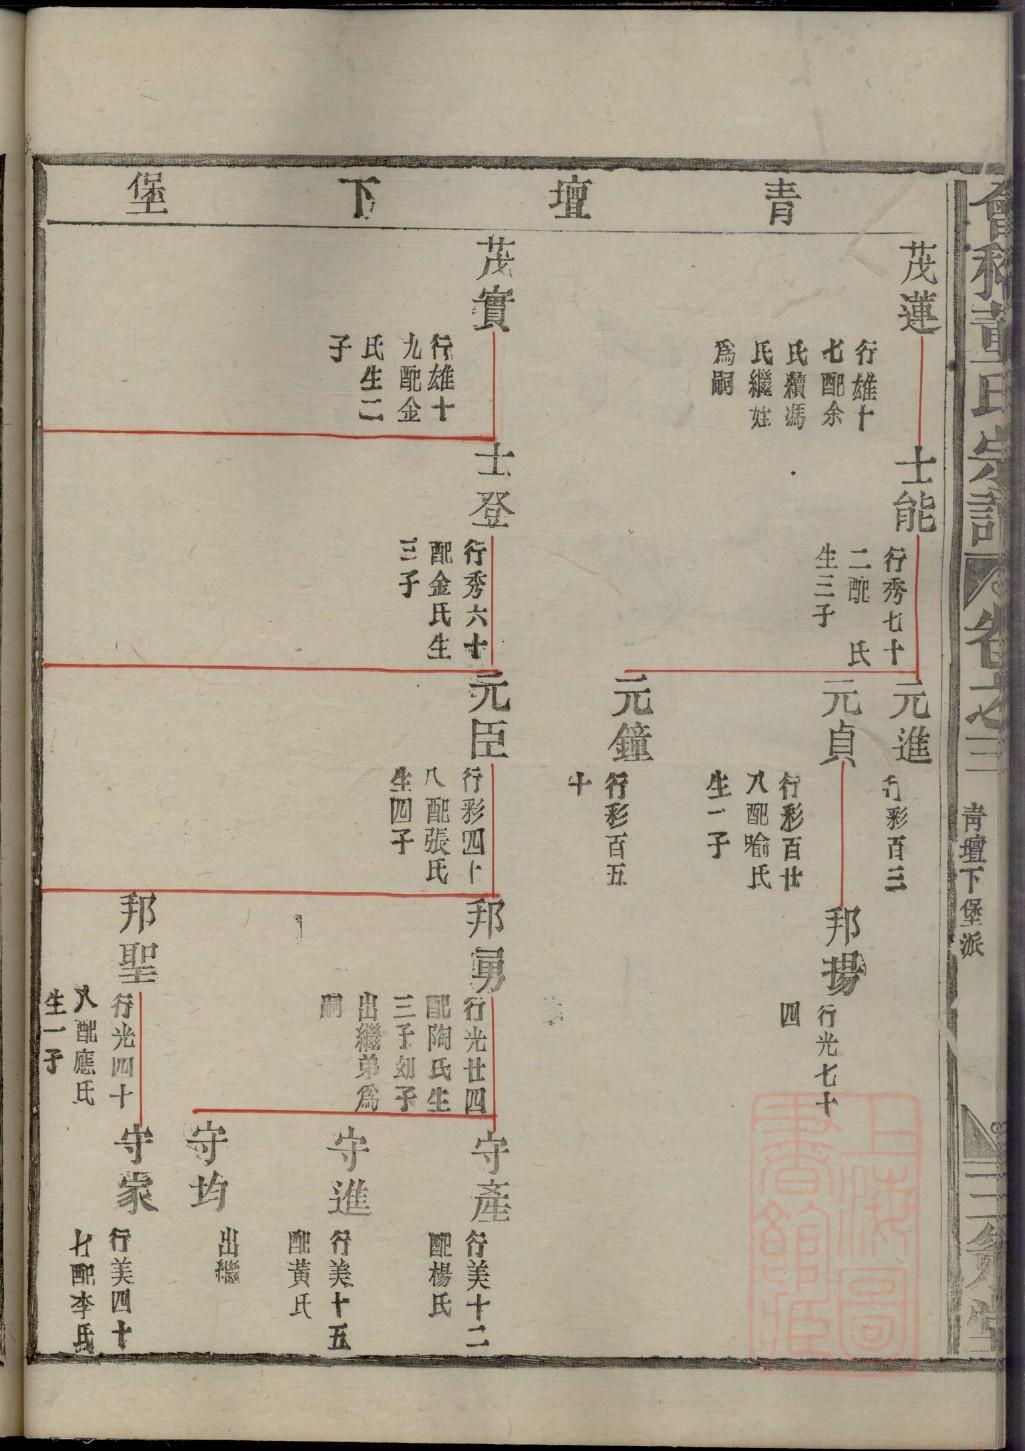 會稽董氏宗譜
卷之三
青壇下堡派
三策堂
青壇下堡
茂蓮
行雄十
七配余
氏續馮
氏繼姪
為嗣
茂實
行雄十
九配金
氏生二
子
士能
行秀七十
二配 氏
生三子
士登
行秀六十
配金氏生
三子
元進
行彩百三
元貞
行彩百廿
八配喻氏
生一子
元鐘
行彩百五
十
元臣
行彩四十
八配張氏
生四子
邦揚
行光七十
四
邦勇
行光廿四
配陶氏生
三子幼子
出繼弟為
嗣
邦聖
行光四十
八配應氏
生一子
守產
行美十二
配楊氏
守進
行美十五
配黃氏
守均
出繼
守蒙
行美四十
七配李氏
上海圖書館藏